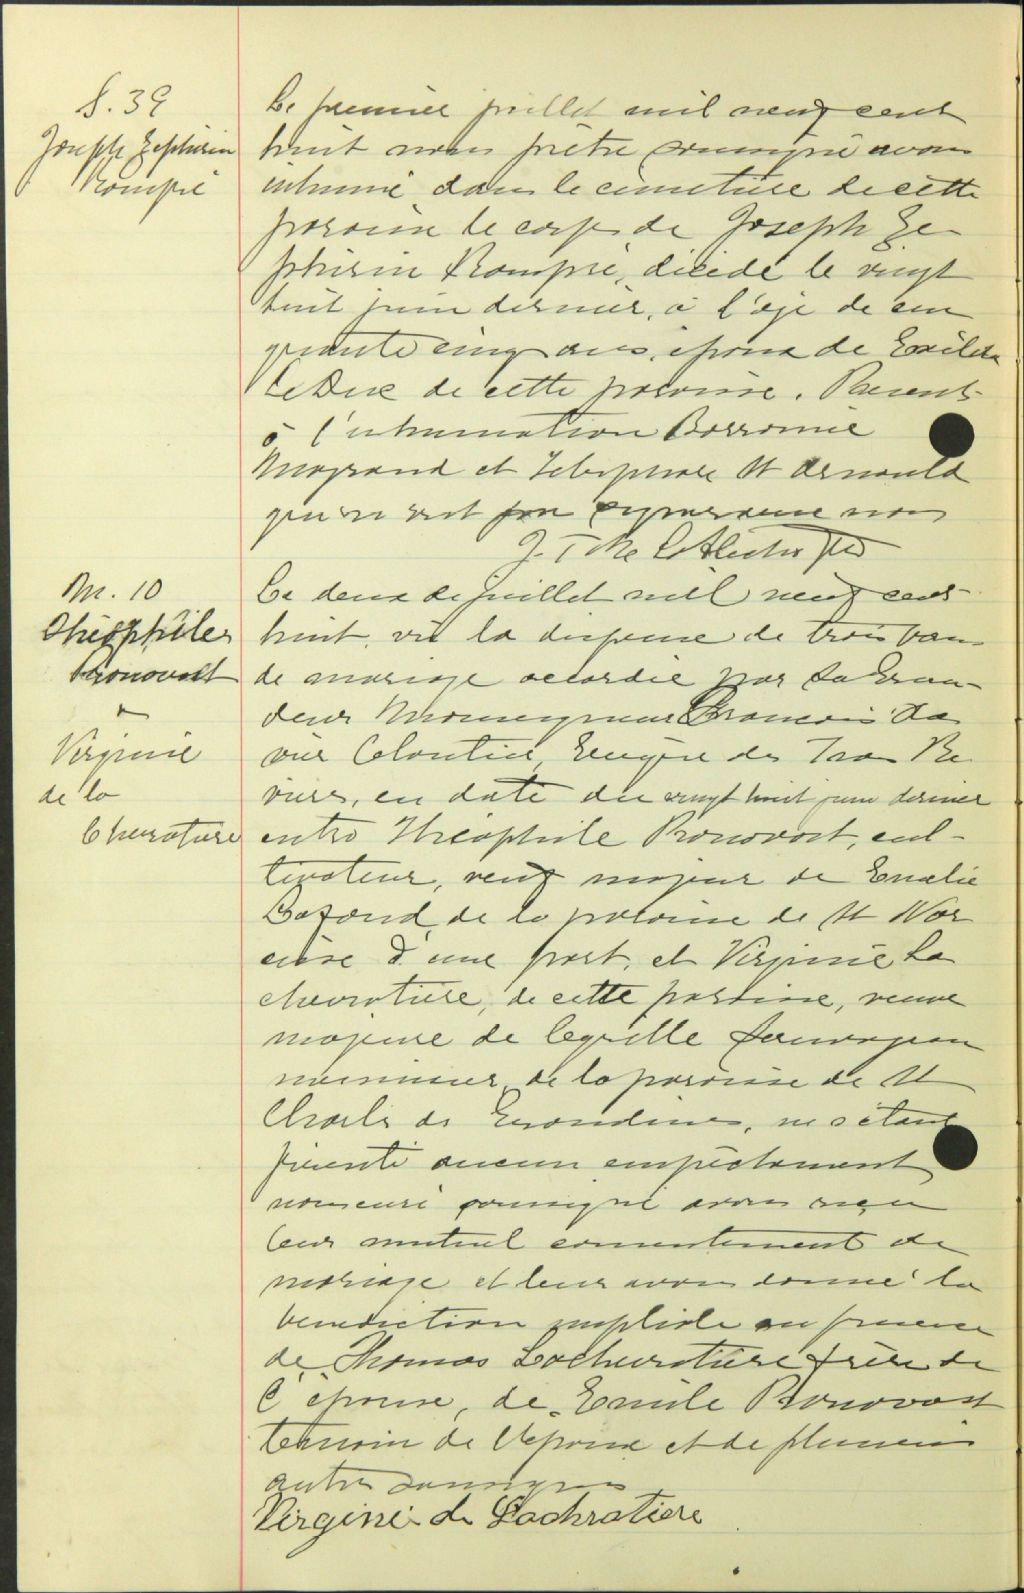 S. 39
Joseph Zephirin
Rompré
Le premier juillet mil neuf cent
huit nous prêtre soussigné avons
inhumé dans le cimetière de cette
paroisse le corps de Joseph Ze-
phirin Rompré, décédé le vingt
huit juin dernier, à l'âge de cin
quante cinq ans, époux de Exilda
LeDuc de cette paroisse. Présents
à l'inhumation Borromée
Magrand et Telesphore St Arnauld
qui n'ont pu signer avec nous
J. T.
M. 10
Théophile
Pronovost
&
Virginie
de la
Chevrotière
Le deux de juillet mil neuf cent
huit, vu la dispense de trois bans
de mariage accordée par Sa Gran-
deur Monseigneur François Xa
vier Cloutier, Evêque des Trois Ri
vières, en date du vingt huit juin dernier
entre Théophile Pronovost, cul-
tivateur, veuf majeur de Emelie
Lafond, de la paroisse de St Nar
cisse d'une part, et Virginie La
chevrotière, de cette paroisse, veuve
majeure de Cyrille Sauvageau
menuisier, de la paroisse de St
Charles des Grondines, ne s'étant
présenté aucun empêchement
nous curé soussigné avons reçu
leur mutuel consentement de
mariage et leur avons donné la
bénédiction nuptiale en présence
de Thomas Lachevrotière frère de
l'épouse, de Emile Pronovost
témoin de l'époux et de plusieurs
autres soussignés
Virginie de Lachratiere